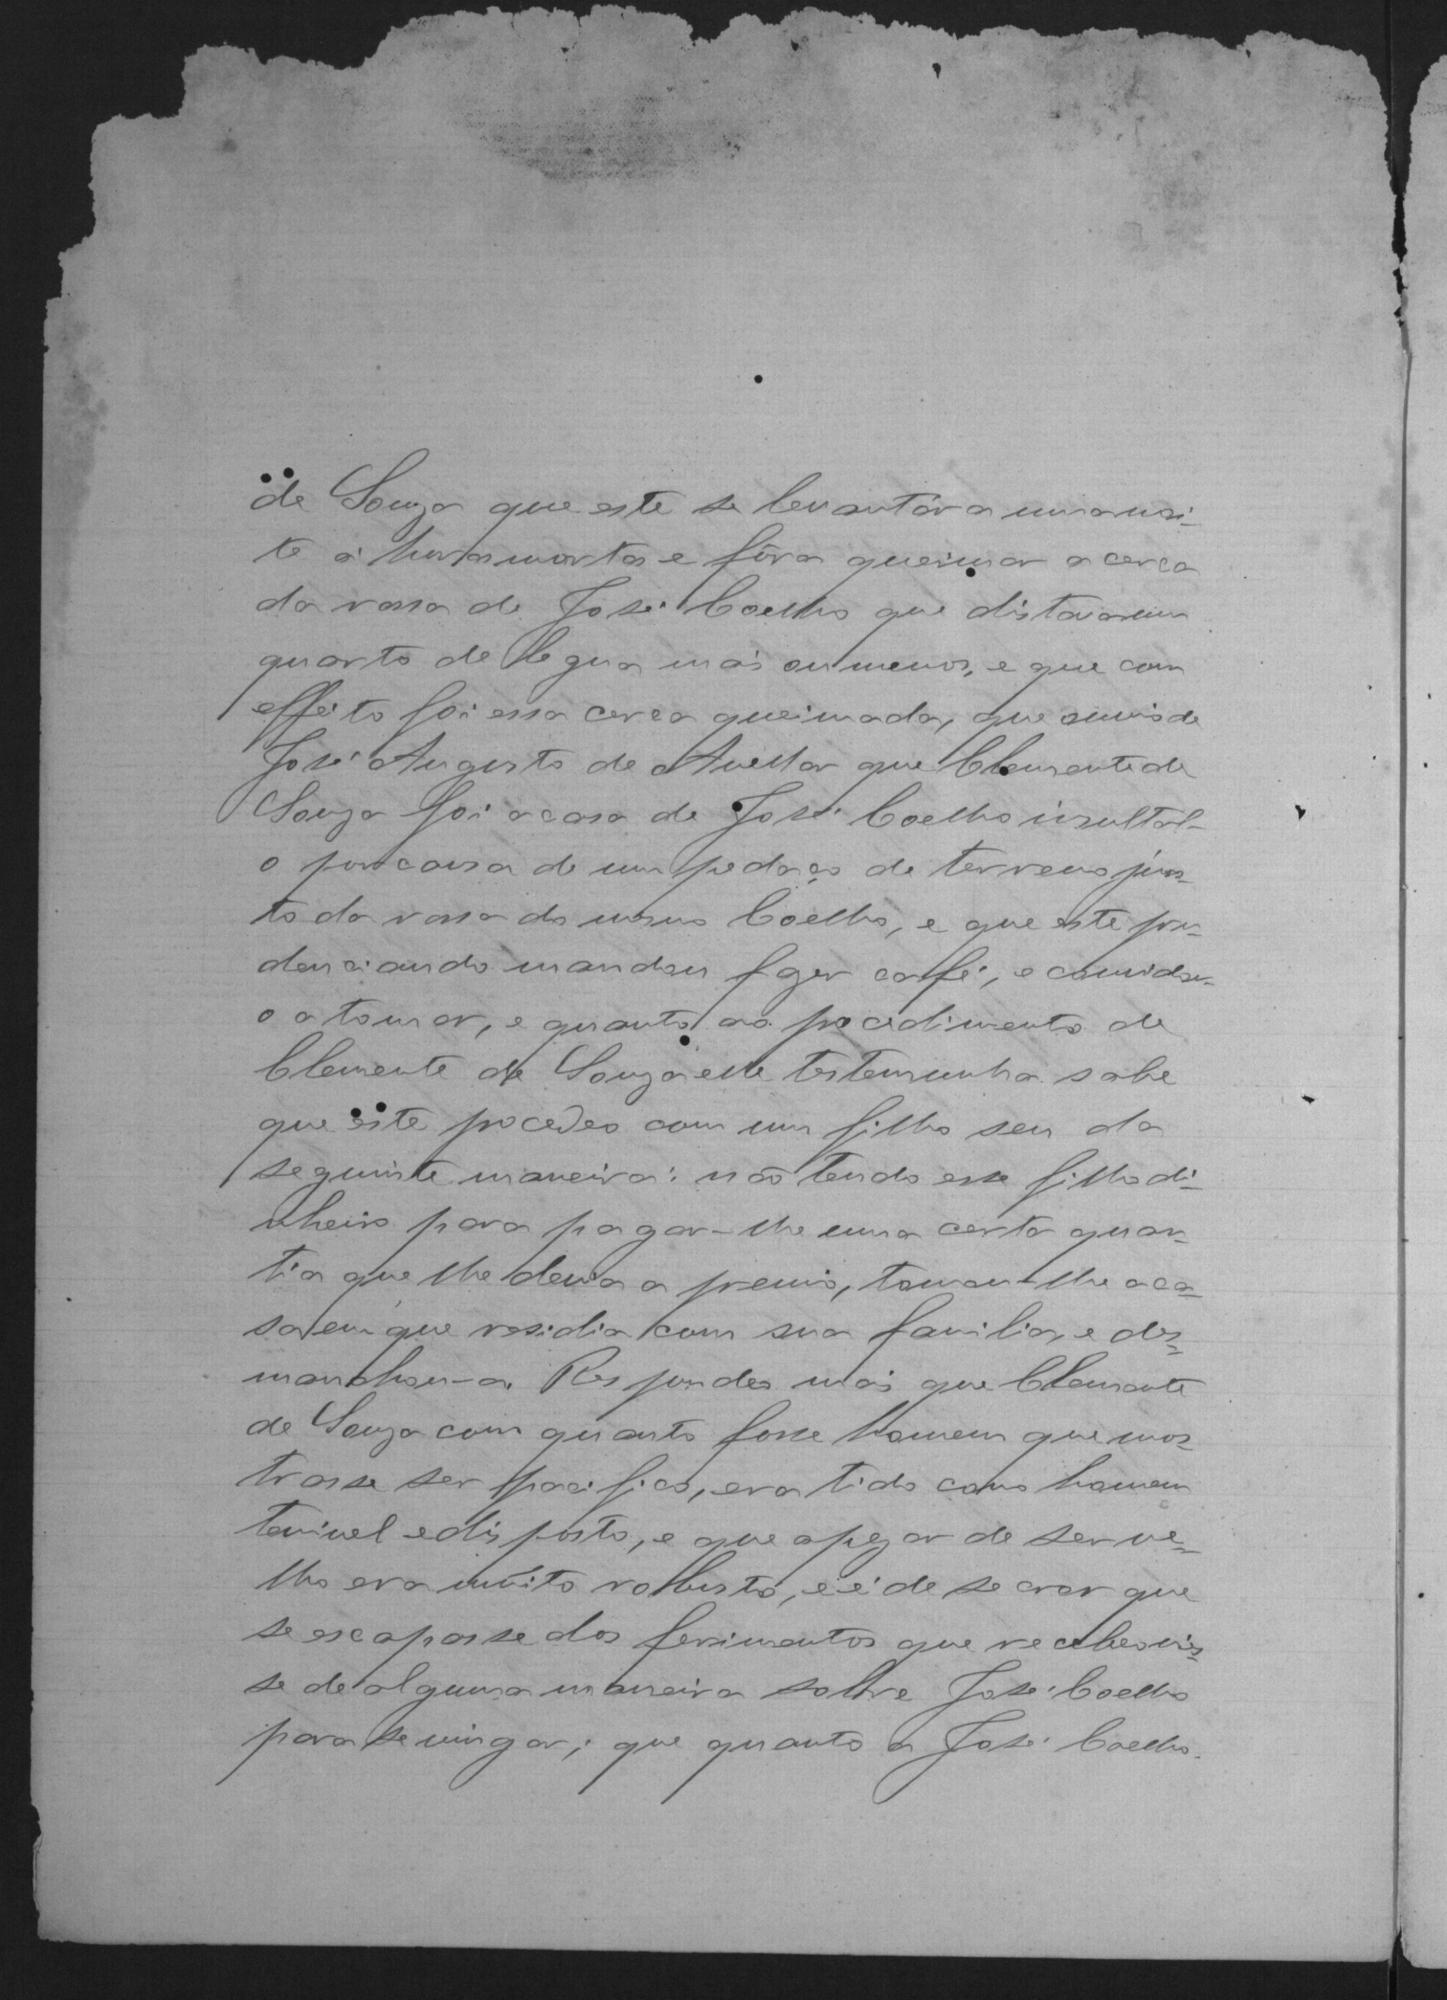 de Souza que este se levantára uma noi-
te a horas mortas e fôra queimar a cerca
da rossa de José Coelho que distava um
quarto de legua mais ou menos, e que com
effeito foi essa cerca queimada, que ouvio de
José Augusto de Avellar que Clemente de
Souza foi a casa de José Coelho insultal-
o por causa de um pedaço de terreno jun-
to da rossa do mesmo Coelho, e que este pru-
denciando mandou fazer café, e convidou-
o a tomar, e quanto ao procedimento de
Clemente de Souza elle testemunha sabe
que este procedeo com um filho seu da
seguinte maneira: não tendo esse filho di-
nheiro para pagar-lhe uma certa quan-
tia que lhe devia a premio, tomou-lhe a ca-
sa em que residia com sua familia, e des-
manchou-a. Respondeo mais que Clemente
de Souza com quanto fosse homem que mos-
trasse ser pacifico, era tido como homem
terrivel e disposto, e que apezar de ser ve-
lho era muito robusto, e é de se crer que
se escapasse dos ferimentos que recebeo vies-
se de alguma maneira sobre José Coelho
para se vingar; que quanto a José Coelho